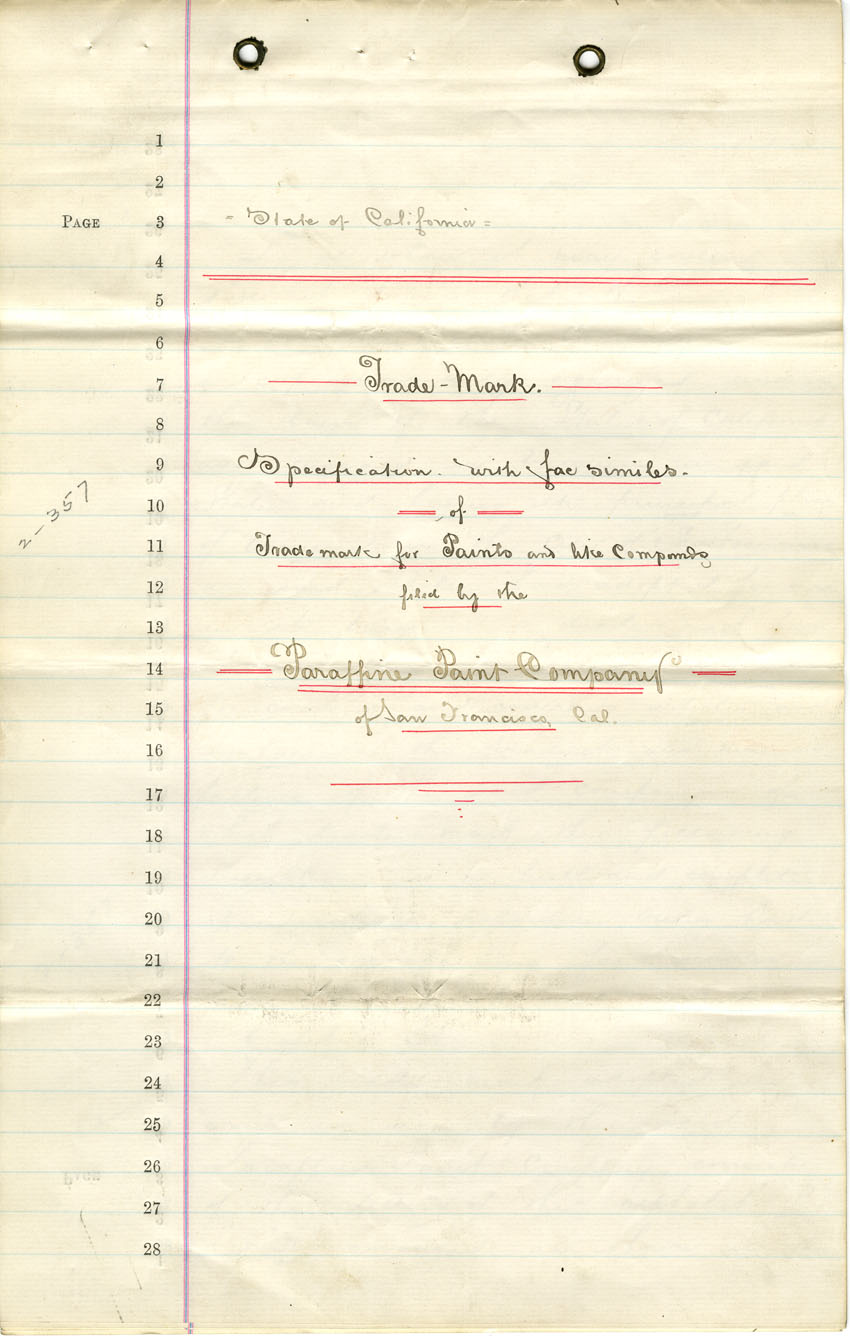 1
2
PAGE 3 = State of California =
4
5
6
7 Trade-Mark.
8
9 Specification. with fac similes.
10 of
2-357
11 Trade mark for Paints and like Compounds
12 filed by the
13
14 Paraffine Paint Company
15 of San Francisco, Cal.
16
17
18
19
20
21
22
23
24
25
26
27
28